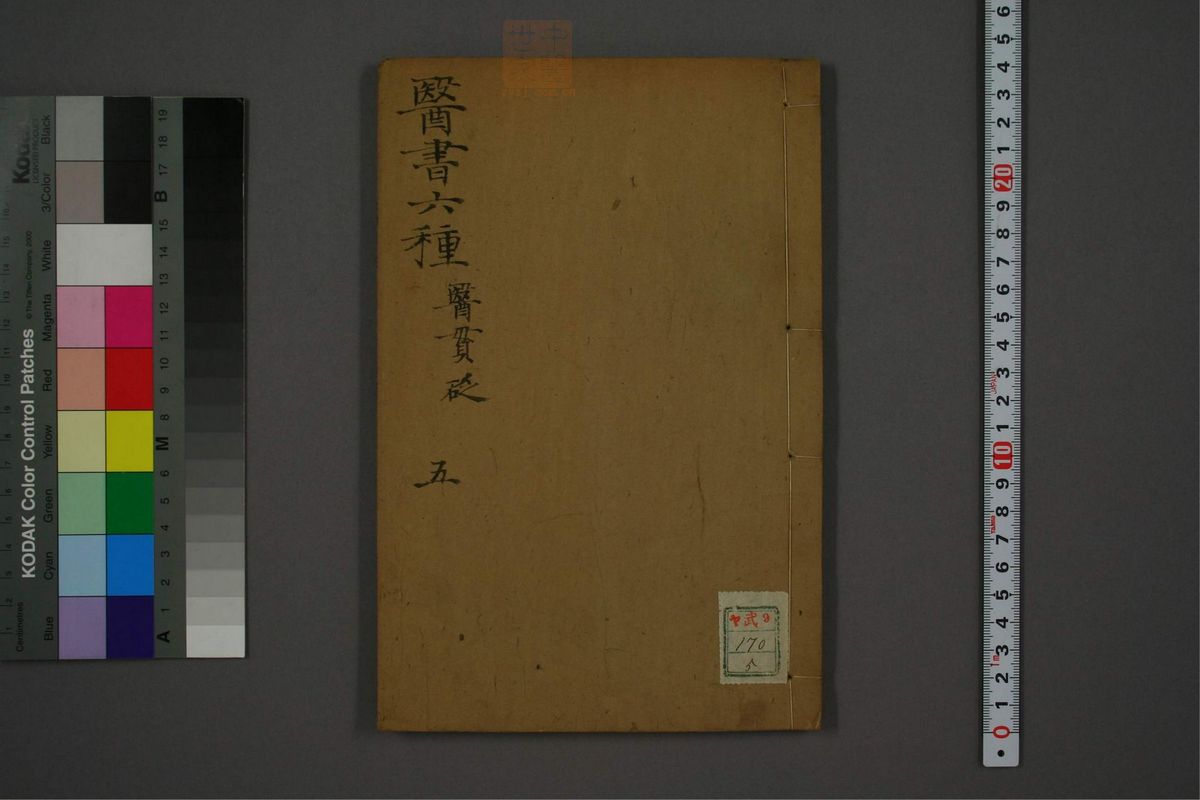 醫書六種
醫貫砭
五
ヤ武9
170
5
KODAK Color Control Patches
Kodak
LICENSED PRODUCT
© The Tiffen Company, 2000
Centimetres
Blue
Cyan
Green
Yellow
Red
Magenta
White
3/Color
Black
A 1 2 3 4 5 6 M 8 9 10 11 12 13 14 15 B 17 18 19
0 1 2 3 4 5 6 7 8 9 10 1 2 3 4 5 6 7 8 9 20 1 2 3 4 5 6
1m
JAPAN